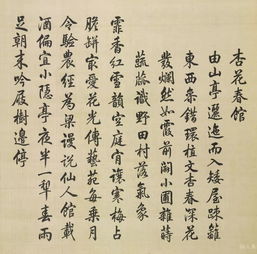 杏花春館
由山亭邐迤而入矮屋疎籬
東西參錯環植文杏春深花
發爛然如霞前闢小圃雜蒔
蔬蓏識野田村落氣象
霏香紅雪韻空庭肯讓寒梅占
膽缾家愛花光傳藝苑每乘月
令驗農經為梁漫説仙人館載
酒偏宜小隱亭夜半一犂春雨
足朝來吟屐樹邊停